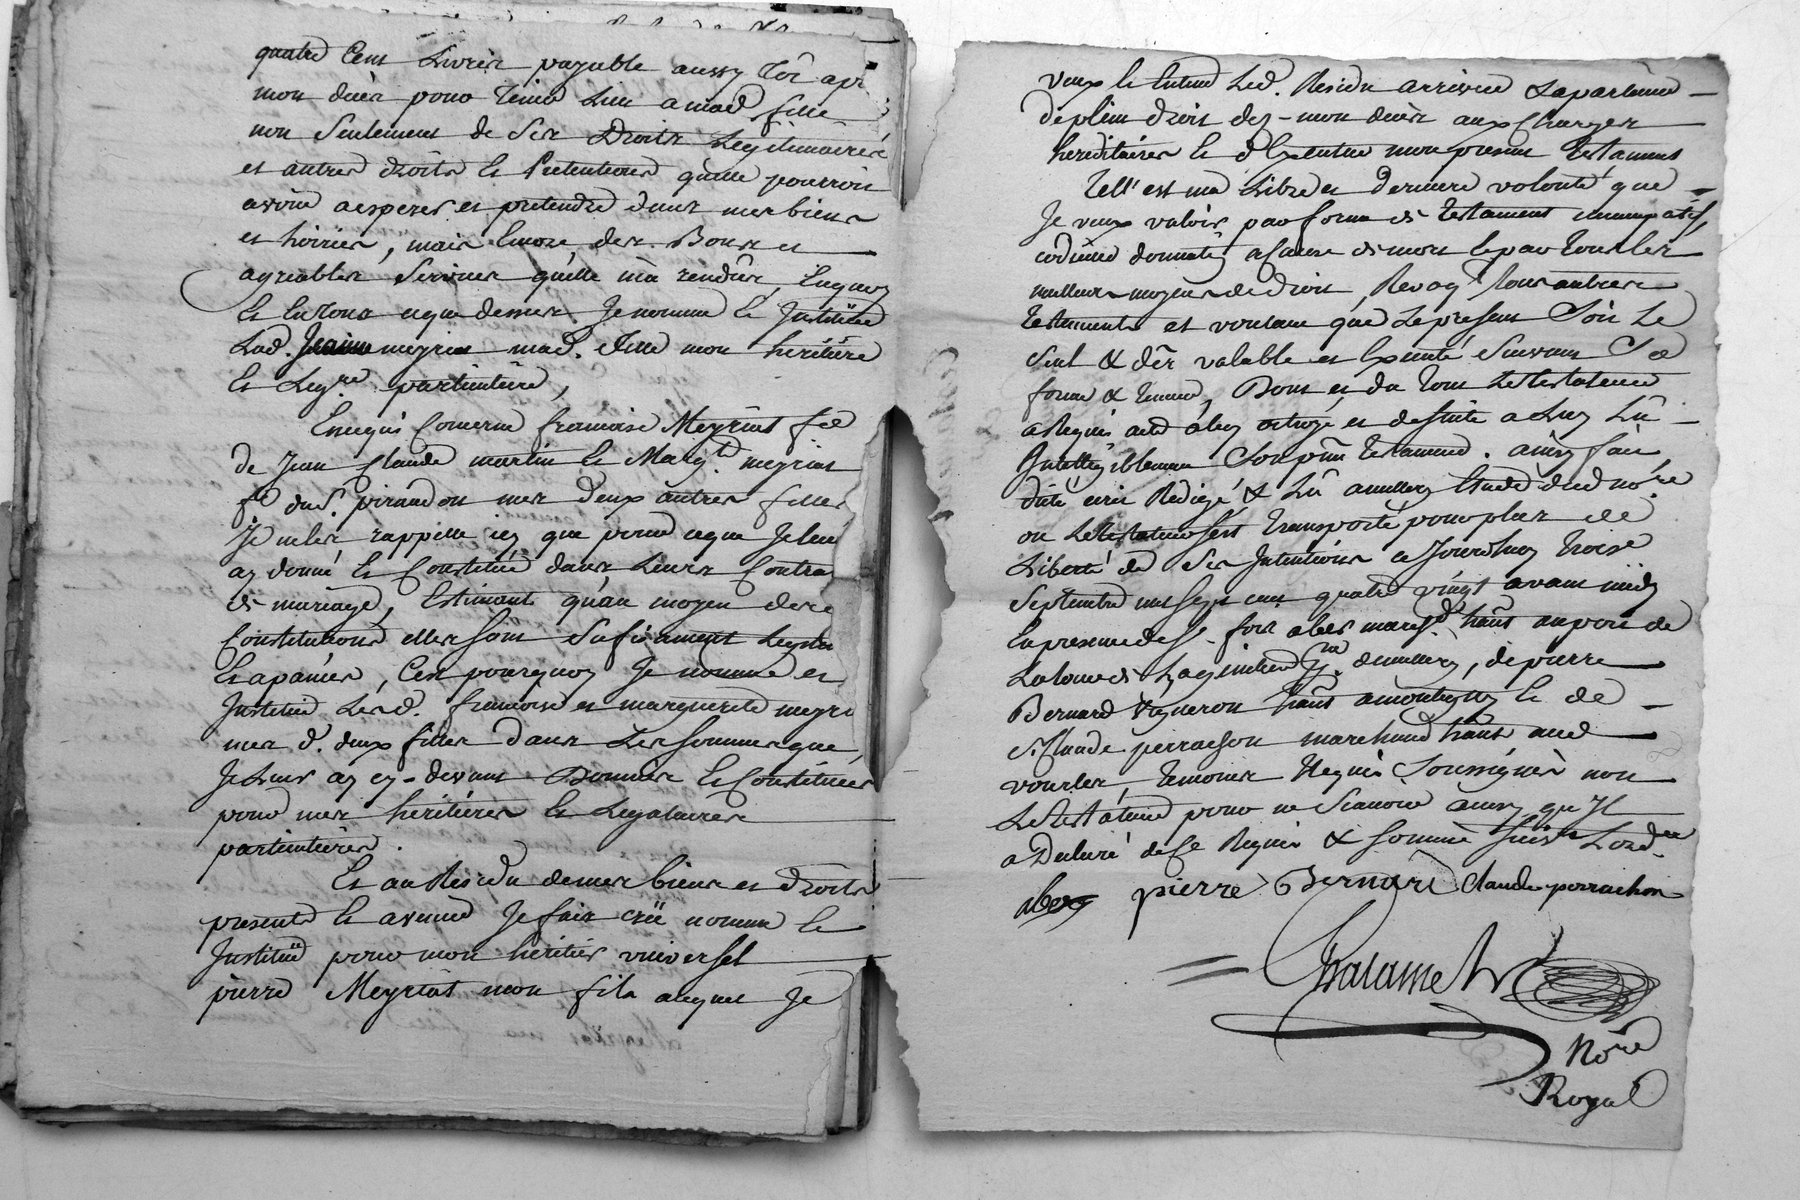 quatre Cent Livres payable aussy tôt apr
mon décès pour tenir Lieu a mad. fille
non Seulement de Ses Droits Legitimaires
et autres droits et Pretentions qu'elle pourroit
avoir a esperer et pretendre dans mes biens
et hoiries, mais Encore des Bons et
agreables Services qu'elle m'a rendûs, Enquoy
Et En tout ce que dessus Je nomme et Institue
Lad. Jeanne meyriat mad. fille mon heritiere
Et Leg.re particuliere,
Encequi Concerne francoise Meyriat fe
de Jean Claude martin et Marg.te meyriat
fe du S. pirandon mes deux autres filles
Je ne les rappelle icy que pour ce que Je leur
ay donné et Constitué dans Leurs Contra
de mariage, Estimant qu'au moyen de ce
Constitutions elles sont Sufisament
Et apanées, C'est pourquoy Je nomme et
Institue Lesd. francoise et marguerite meyri
mes d. deux filles dans Les sommes que
Je Leurs ay cy-devant Données et Constituées
pour mes heritieres et Legataires
particulieres.
Et au Residu de mes biens et droits
presents et avenir Je fais créé nomme et
Institue pour mon heritier universel
pierre Meyriat mon fils auquel Je
veux et Entend Led. Residu arriver & apartenir
de plein droit dez-mon décès aux Charges
hereditaires et d'Executer mon present testament
Tell'est ma Libre et derniere volonté que
Je veux valoir par forme de testament nuncupatif,
codicille donnation a Cause de mort et par tous les
meilleurs moyens de droit, Revoq.t tous autres
testaments et voulant que Le present Soit Le
Seul & dêr valable et Executé Suivant Sa
forme & teneur, Dont et du tout Le testateur
a Requis acte a luy octroyé et desuite a Luy Lû
Intelligiblement Son pnt testament. ainsy fait
dicté ecrit Redigé & Lû Etude dud no.re
ou Le testateur s'est transporté pour plus de
Liberté de Ses Intentions ce Jourdhuy troise
Septembre mil sept cent quatre vingt avant midy
En presence de Sr. abel march.d habt.
de pierre
Bernard Vigneron habt. et de
Sr. Claude perrachon marchand habt. aud
vourles, temoins Requis Soussignés non
Le testateur pour ne Scavoir ainsy qu'Il
a Declaré de Ce Requis & sommé Suiv.t Lord.ce
abel pierre Bernard Claude perrachon
Chalamel
No.re
Royal